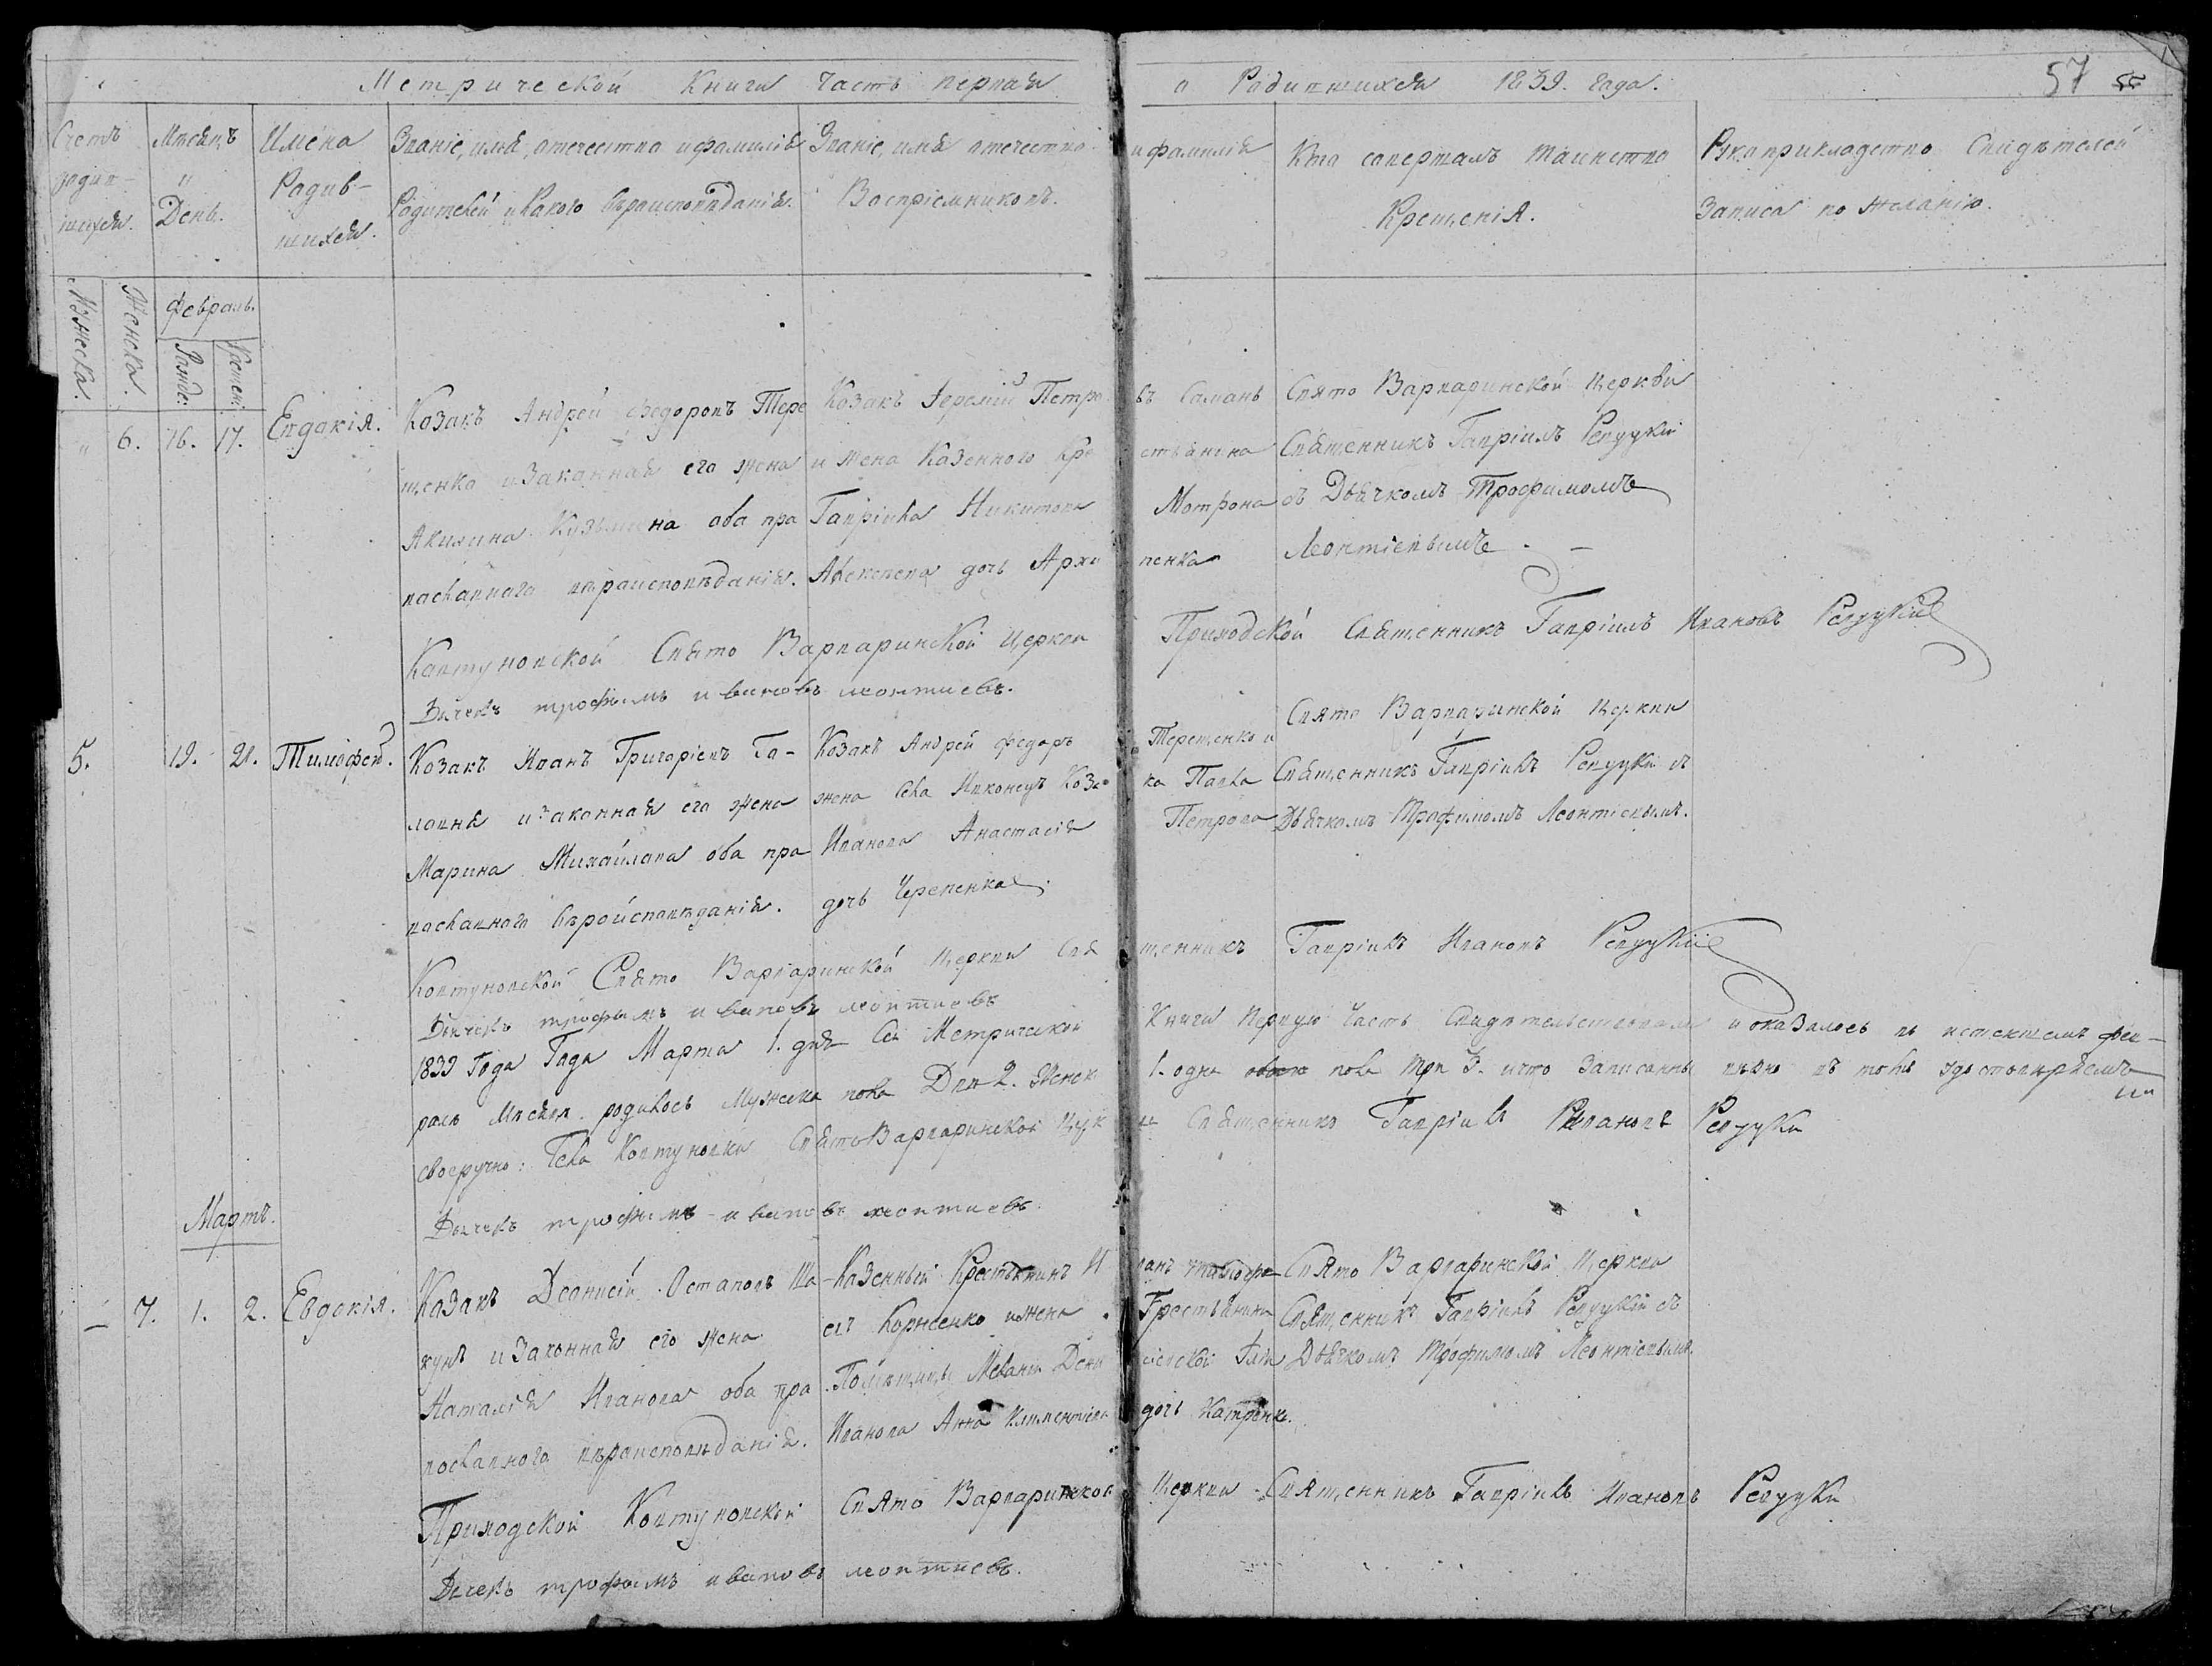 Метрической Книги часть первая о Родившихся 1839. года.
57
Счетъ родив-шихся.
Мѣсяцъ и День.
Имена Родив-шихся.
Званіе, имя, отечество и фамилія Родителей и какого вѣроисповѣданія.
Званіе, имя отечество и фамилія Воспріемниковъ.
Кто совершалъ таинство Крещенія.
Рукоприкладство Свидѣтелей Записа по желанію.
Мужеска.
Женска.
Февраль.
Рожде:
Крещен:
" 6. 16. 17. Евдокія.
Козакъ Андрей Федоровъ Тере
щенко и Законная его жена
Акилина Кузьмина оба пра
вославного вѣроисповѣданія.
Козакъ Іеремій Петровъ Саман
и жена Казенного Крестьянина
Гавріила Никитова Мотрона
Алексеева дочь Архипенка
Свято Варваринской Церкви
Священникъ Гавріилъ Репуцкій
съ Дьячкомъ Трофимомъ
Леонтіевымъ. —
Ковтуновской Свято Варваринской Церкви Приходской Священникъ Гавріилъ Ивановъ Репуцкій
Дьячекъ трофимъ ивановъ леонтиевъ.
5. 19. 21. Тимофей.
Козакъ Иванъ Григоріевъ Го-
ловня и законная его жена
Марина Михайлова оба пра
вославного вѣроисповѣданія.
Козакъ Андрей Федоръ Терещенко и
жена Села Ивконецъ Козака Павла
Иванова Анастасія Петрова
дочь Черепенка.
Свято Варваринской Церкви
Священникъ Гавріилъ Репуцкій съ
Дьячкомъ Трофимомъ Леонтіевымъ.
Ковтуновской Свято Варваринской Церкви Священникъ Гавріилъ Ивановъ Репуцкій
Дьячекъ трофимъ ивановъ леонтиевъ
1839 Года Года Марта 1. дня Сей Метрической Книги Первую Часть Свидетельствовалъ и оказалось въ истекшемъ фев-
ралѣ Месяцѣ родилось Мужеска пола Два 2. Женска 1. одна пола три 3. и что Записанны вѣрно въ томъ удостовѣряемъ
своеручно: Села Ковтуновки Свято Варваринской Церкви Священникъ Гавріилъ Ивановъ Репуцкій
Дьячекъ трофимъ ивановъ леонтиевъ.
Мартъ.
— 7. 1. 2. Евдокія.
Козакъ Деонисій Остаповъ
и Законная его жена
Наталія Иванова оба пра
вославного вѣроисповѣданія.
Казенный Крестьянинъ Иванъ
Корнеенко и жена Крестьянина
Помѣщицы
Иванова Анна Климентіева дочь
Свято Варваринской Церкви
Священникъ Гавріилъ Репуцкій съ
Дьячкомъ Трофимомъ Леонтіевымъ.
Приходской Ковтуновской Свято Варваринской Церкви Священникъ Гавріилъ Ивановъ Репуцкій
Дьячекъ трофимъ ивановъ леонтиевъ.